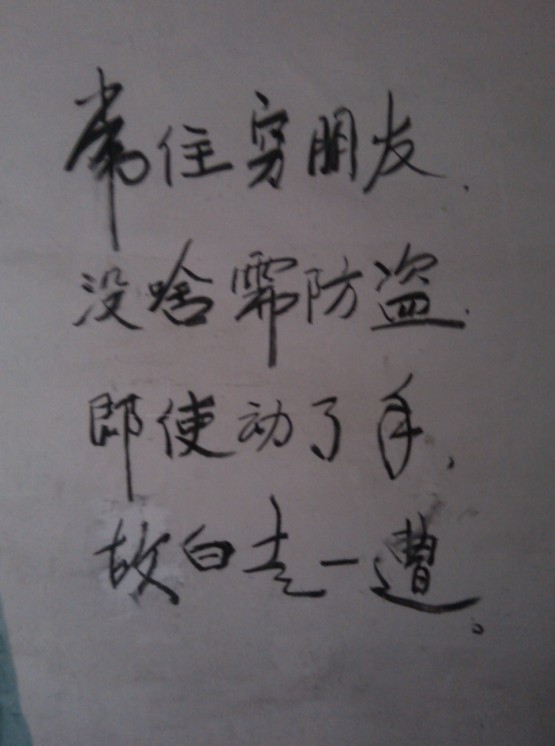 常住穷朋友.
没啥需防盗.
即使动了手,
故白走一遭。